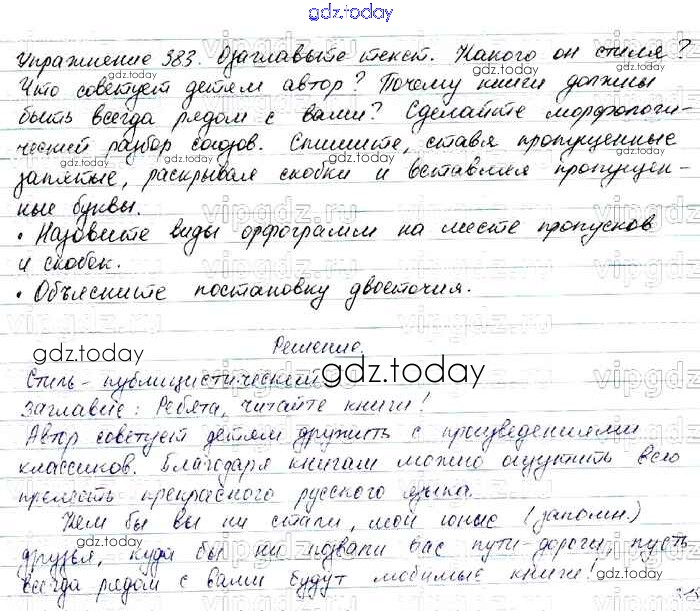 gdz.today
Упражнение 383. Озаглавьте текст. Какого он стиля?
Что советует детям автор? Почему книги должны
быть всегда рядом с вами? Сделайте морфологи-
ческий разбор союзов. Спишите, ставя пропущенные
запятые, раскрывая скобки и вставляя пропущен-
ные буквы.
• Назовите виды орфограмм на месте пропусков
и скобок.
• Объясните постановку двоеточия.
Решение.
gdz.today
gdz.today
Стиль - публицистический
Заглавие: Ребята, читайте книги!
Автор советует детям дружить с произведениями
классиков. Благодаря книгам можно ощутить всю
прелесть прекрасного русского языка.
Кем бы вы ни стали, мои юные (запомн.)
друзья, куда бы ни позвали вас пути-дороги, пусть
всегда рядом с вами будут любимые книги!